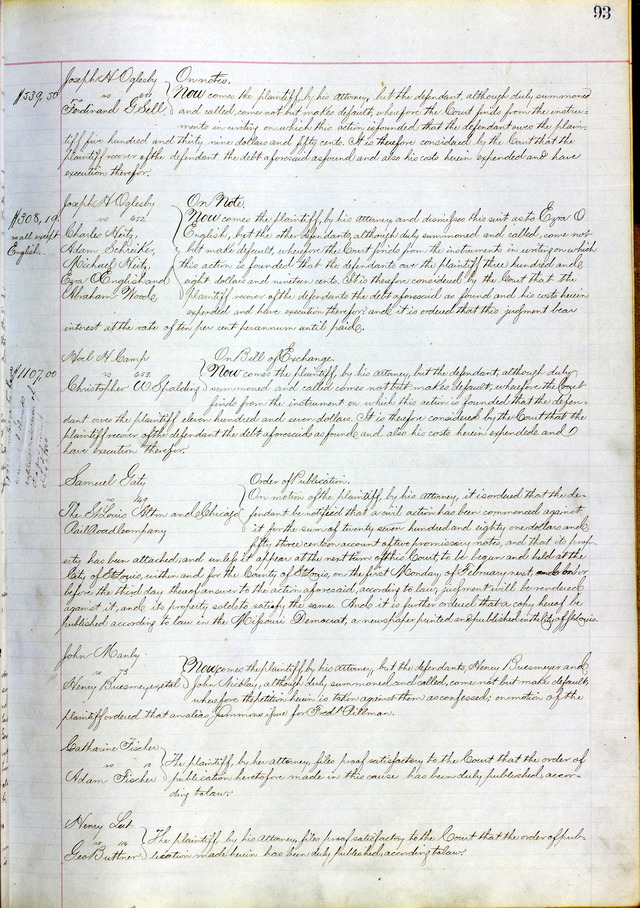 93
Joseph H Oglesby On notes.
$539,50 vs 651 Now comes the plaintiff, by his attorney, but the defendant, although duly summoned
Ferdinand G Sell and called, comes not but makes default, wherefore the Court finds from the instru-
ments in writing on which this action is founded that the defendant owes the plain-
tiff five hundred and thirty nine dollars and fifty cents. It is therefore considered by the Court that the
plaintiff recover of the defendant the debt aforesaid as found and also his costs herein expended and have
execution therefor.
Joseph H Oglesby On Note.
$308,19 vs 652 Now comes the plaintiff, by his attorney and dismisses this suit as to Ezra O
vs all except Charles Heitz, English, but the other defendants, although duly summoned and called, come not
English. Adam Schricker, but make default, wherefore the Court finds from the instrument in writing on which
Michael Heitz, this action is founded that the defendants owe the plaintiff three hundred and
Ezra O English and eight dollars and nineteen cents. It is therefore considered by the Court that the
Abraham Wood plaintiff recover of the defendants the debt aforesaid as found and his costs herein
expended and have execution therefor. and it is ordered that this judgment bear
interest at the rate of ten per cent per annum until paid.
H Camp On Bill of Exchange.
$1107,00 vs 653 Now comes the plaintiff, by his attorney, but the defendant, although duly
Christopher W Spalding summoned and called comes not but makes default, wherefore the Court
finds from the instrument on which this action is founded that the defen-
dant owes the plaintiff eleven hundred and seven dollars. It is therefore considered by the Court that the
plaintiff recover of the defendant the debt aforesaid as found and also his costs herein expended and
have execution therefor.
Samuel Gaty Order of Publication.
vs On motion of the plaintiff by his attorney, it is ordered that the de-
The St Louis Alton and Chicago fendant be notified that a civil action has been commenced against
Rail Road Company it for the sum of twenty seven hundred and eighty one dollars and
fifty three cents on account of two promissory notes, and that its prop-
erty has been attached; and unless it appear at the next term of this Court, to be begun and held at the
City of St Louis, within and for the County of St Louis, on the first Monday of February next, and on or
before the third day thereof answer to the action aforesaid, according to law, judgment will be rendered
against it, and its property sold to satisfy the same. And it is further ordered that a copy hereof be
published according to law in the Missouri Democrat, a newspaper printed and published in the City of St Louis.
John Manly
vs 73 Now comes the plaintiff by his attorney, but the defendants, Henry Buesmeyer and
Henry Buesmeyer et al John although duly summoned and called, come not but make default,
wherefore the petition herein is taken against them as confessed; on motion of the
plaintiff ordered that an alias summons issue for Fredk Pillman.
Catharine Fischer
vs The plaintiff, by her attorney, files proof satisfactory to the Court that the order of
Adam Fischer publication heretofore made in this cause has been duly published, accor-
ding to law.
Henry
vs The plaintiff, by his attorney, files proof satisfactory to the Court that the order of pub-
Geo Buttner lication made herein has been duly published, according to law.